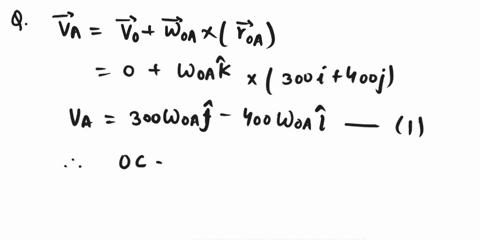 Q. V⃗A = V⃗0 + W⃗OA × ( r⃗OA )
= 0 + WOA k̂ × ( 300i + 400j )
VA = 300WOA ĵ - 400WOA î — (1)
∴ OC -